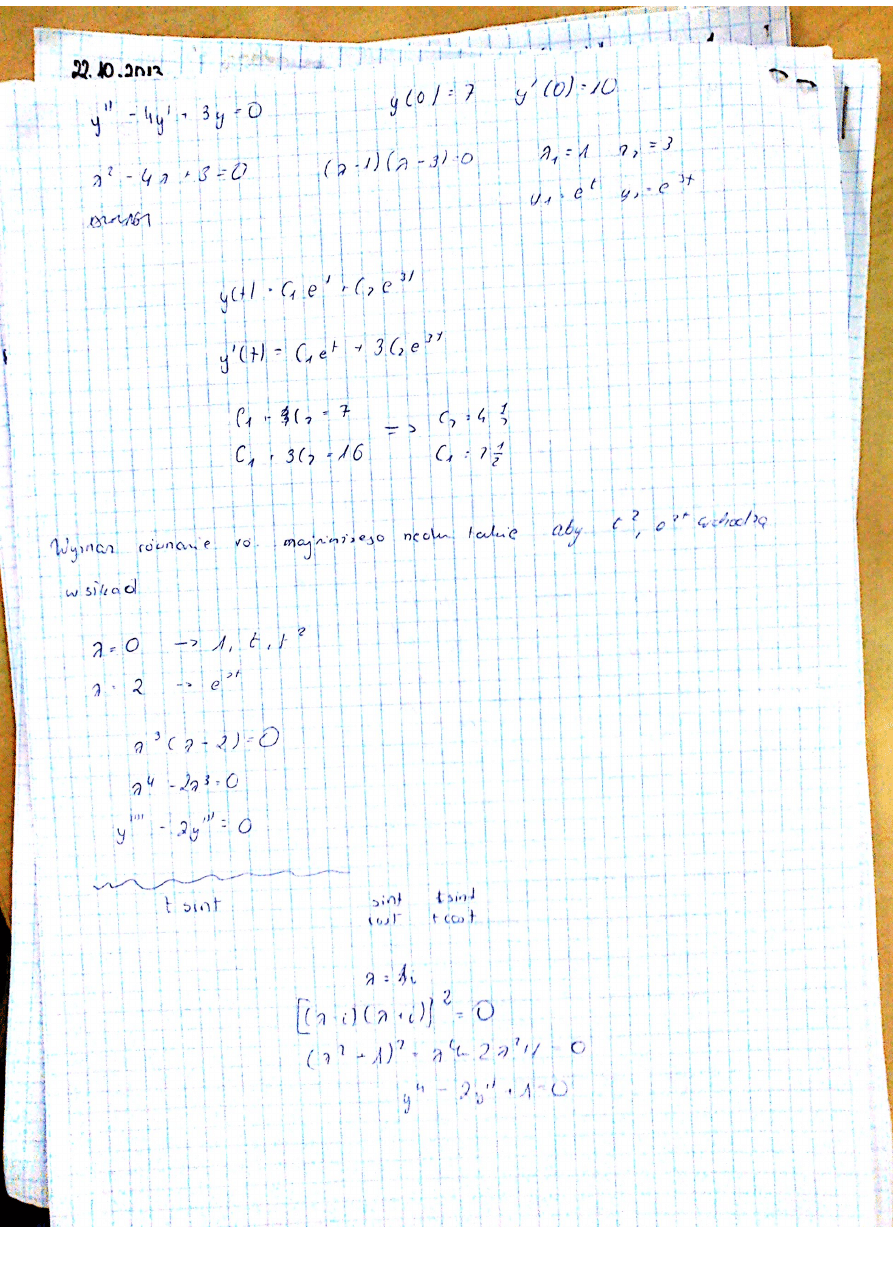 22.10.2012
y'' - 4y' + 3y = 0 y(0) = 7 y'(0) = 10
λ² - 4λ + 3 = 0 (λ-1)(λ-3) = 0 λ₁ = 1 λ₂ = 3
y₁ = e^t y₂ = e^3t
y(t) = C₁e^t + C₂e^3t
y'(t) = C₁e^t + 3C₂e^3t
C₁ + C₂ = 7 => C₂ = 4 1/2
C₁ + 3C₂ = 16 C₁ = 2 1/2
równanie aby t², e^2t wchodzą
w skład
λ = 0 -> 1, t, t²
λ = 2 -> e^2t
λ³(λ-2) = 0
λ⁴ - 2λ³ = 0
y'''' - 2y''' = 0
t sint sint t sint
cost t cost
λ = 1i
[(λ-i)(λ+i)]² = 0
(λ² + 1)² = λ⁴ - 2λ² + 1 = 0
y⁴ - 2y'' + 1 = 0